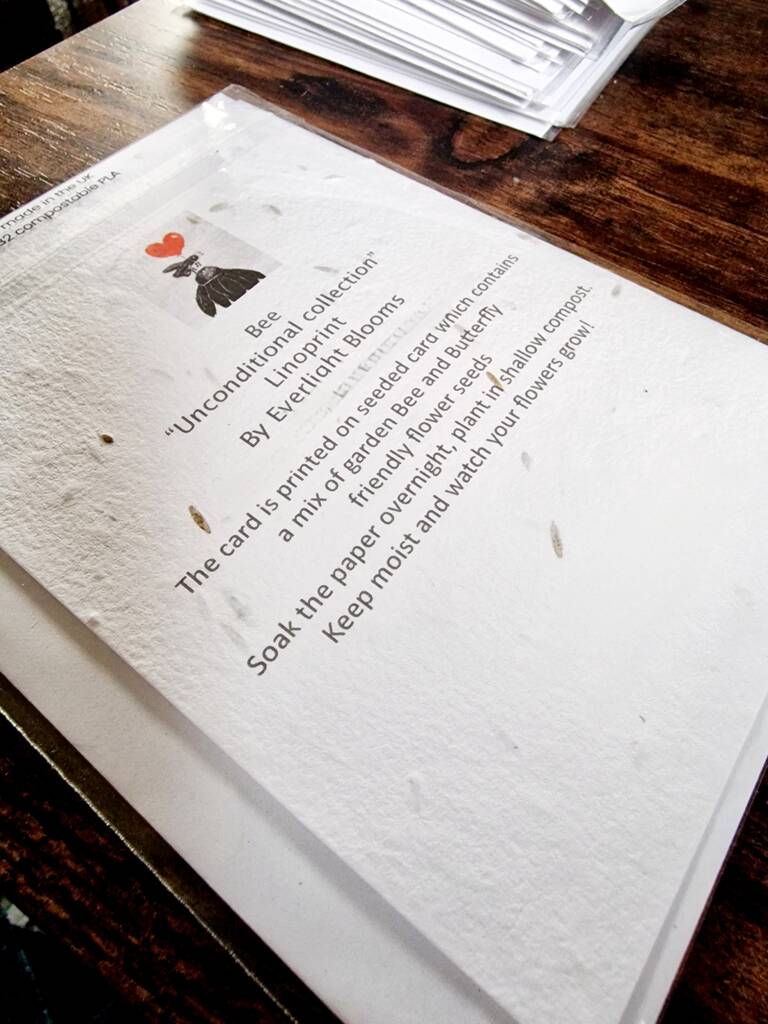 made in the UK
compostable PLA
Bee
“Unconditional collection”
Linoprint
By Everlight Blooms
The card is printed on seeded card which contains
a mix of garden Bee and Butterfly
friendly flower seeds
Soak the paper overnight, plant in shallow compost.
Keep moist and watch your flowers grow!